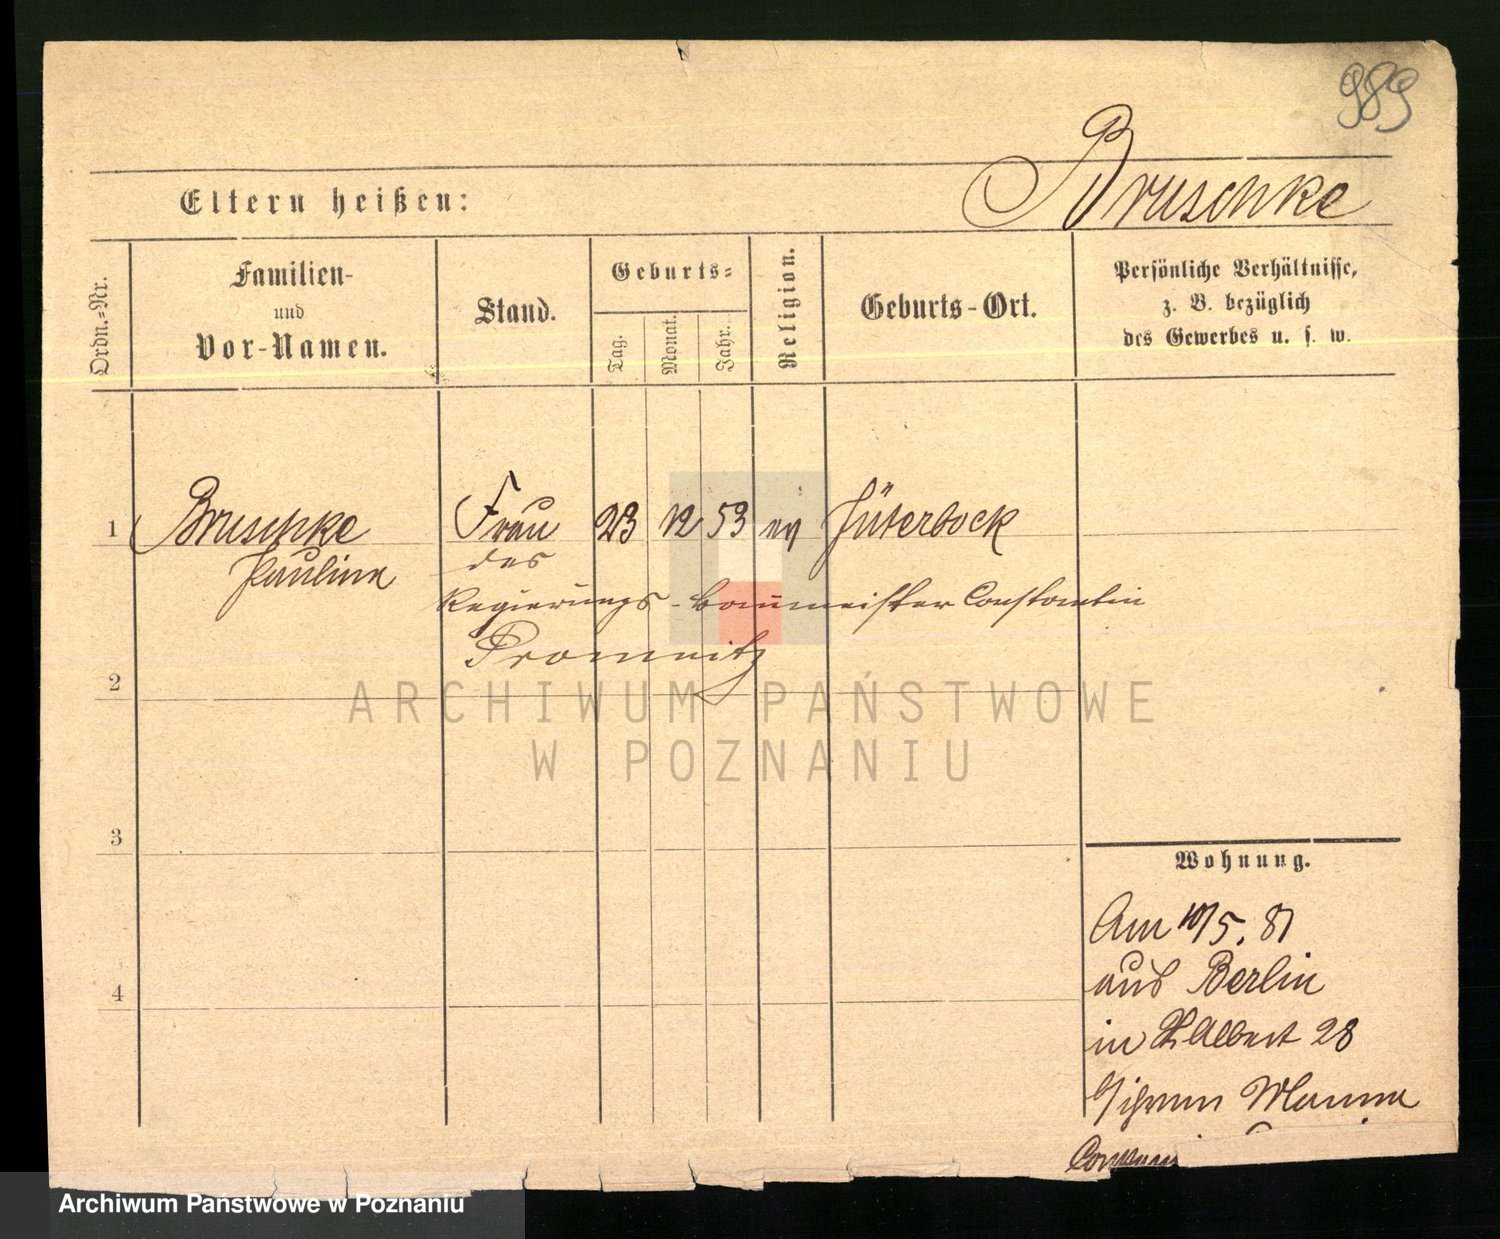 989
Bruschke
Eltern heißen:
Ordn.=Nr.
Familien-
und
Vor-Namen.
Stand.
Geburts=
Tag.
Monat.
Jahr.
Religion.
Geburts-Ort.
Persönliche Verhältnisse,
z. B. bezüglich
des Gewerbes u. s. w.
1 Bruschke Frau 23 12 53 ev Jüterbock
Pauline des
Regierungs-baumeister Constantin
Promnitz
2
ARCHIWUM PAŃSTWOWE
W POZNANIU
3
Wohnung.
Am 10/5. 81
aus Berlin
4
in St Albert 28
b/ ihrem Manne
Archiwum Państwowe w Poznaniu